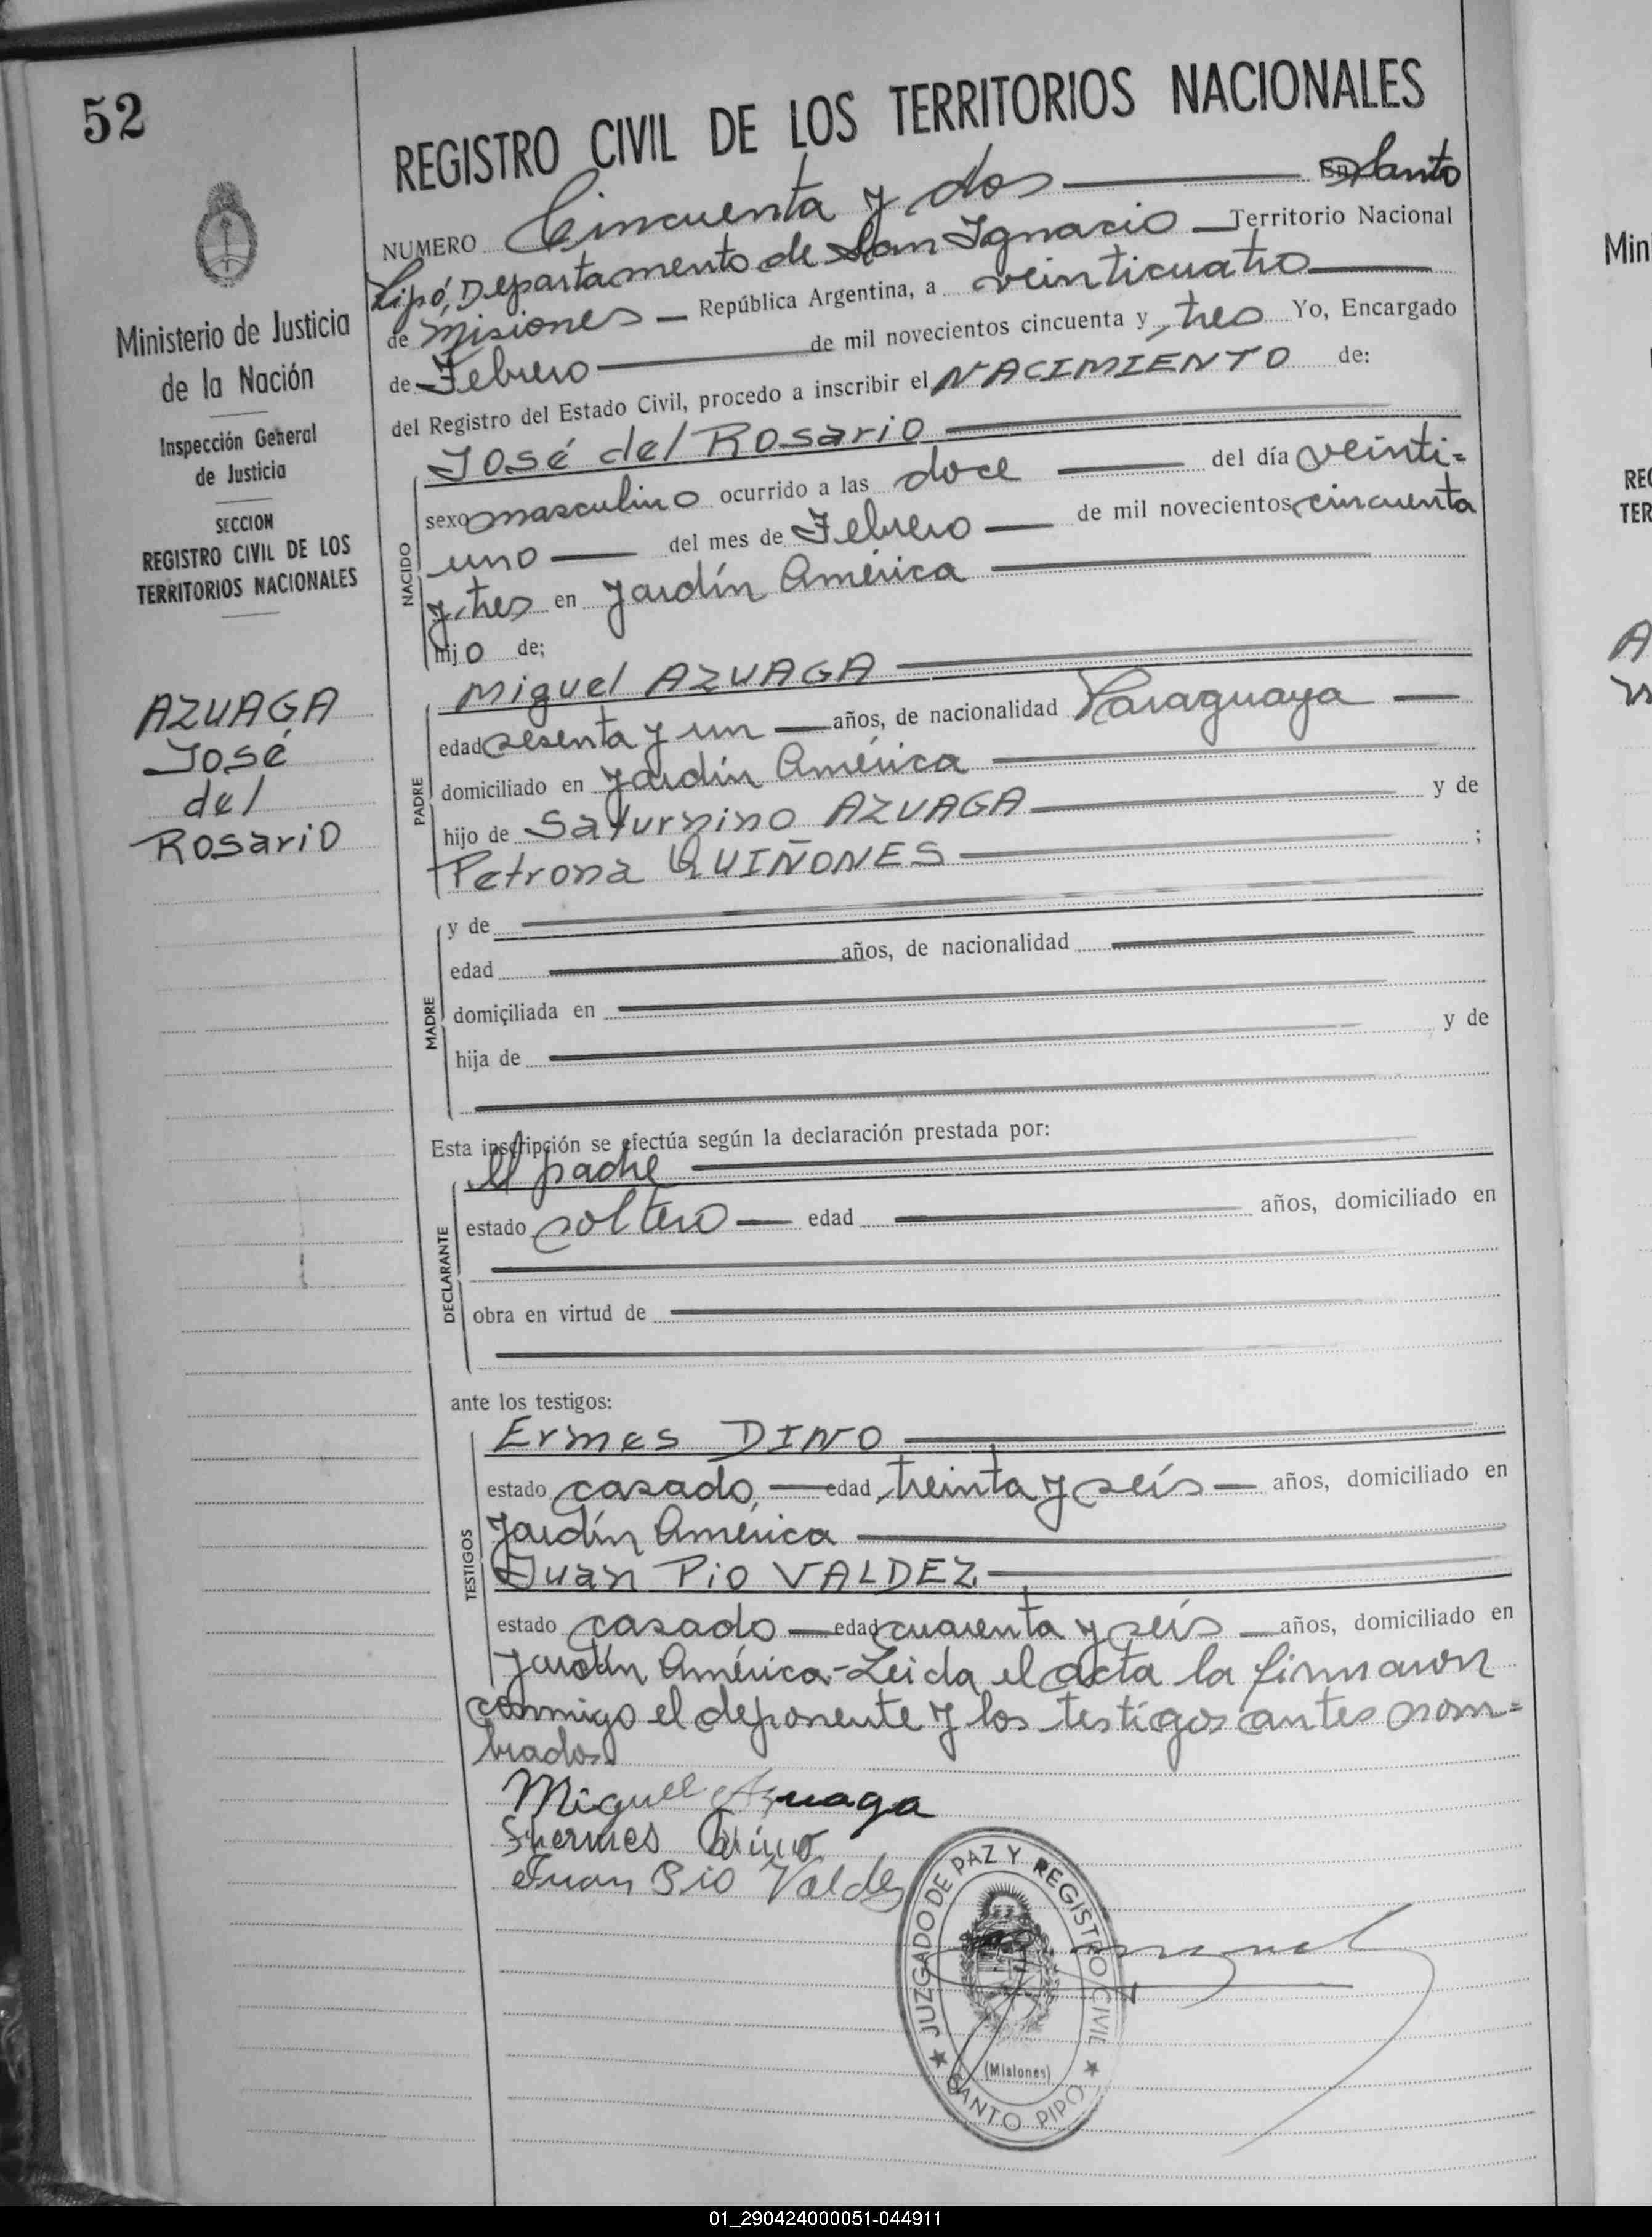 52
REGISTRO CIVIL DE LOS TERRITORIOS NACIONALES
NUMERO Cincuenta y dos En Santo
Pipó, Departamento de San Ignacio Territorio Nacional
de Misiones República Argentina, a veinticuatro
de Febrero de mil novecientos cincuenta y tres Yo, Encargado
del Registro del Estado Civil, procedo a inscribir el NACIMIENTO de:
Ministerio de Justicia
de la Nación
Inspección General
de Justicia
SECCION
REGISTRO CIVIL DE LOS
TERRITORIOS NACIONALES
AZUAGA
José
del
Rosario
NACIDO
José del Rosario
sexo masculino ocurrido a las doce del día veinti=
uno del mes de Febrero de mil novecientos cincuenta
y tres en Jardín América
hijo de;
PADRE
Miguel AZUAGA
edad sesenta y un años, de nacionalidad Paraguaya
domiciliado en Jardín América
hijo de Saturnino AZUAGA y de
Petrona QUIÑONES ;
MADRE
y de
edad años, de nacionalidad
domiciliada en
hija de y de
Esta inscripción se efectúa según la declaración prestada por:
DECLARANTE
el padre
estado soltero edad años, domiciliado en
obra en virtud de
ante los testigos:
TESTIGOS
Ermes DINO
estado casado, edad treinta y seís años, domiciliado en
Jardín América
Juan Pio VALDEZ
estado casado edad cuarenta y seís años, domiciliado en
Jardín América.-Leida el acta la firmaron
conmigo el deponente y los testigos antes nom=
brados.
Miguel Azuaga
Juan Pio Valdez
JUZGADO DE PAZ Y REGISTRO CIVIL
(Misiones)
SANTO PIPO
Min
REG
TER
A
01_290424000051-044911